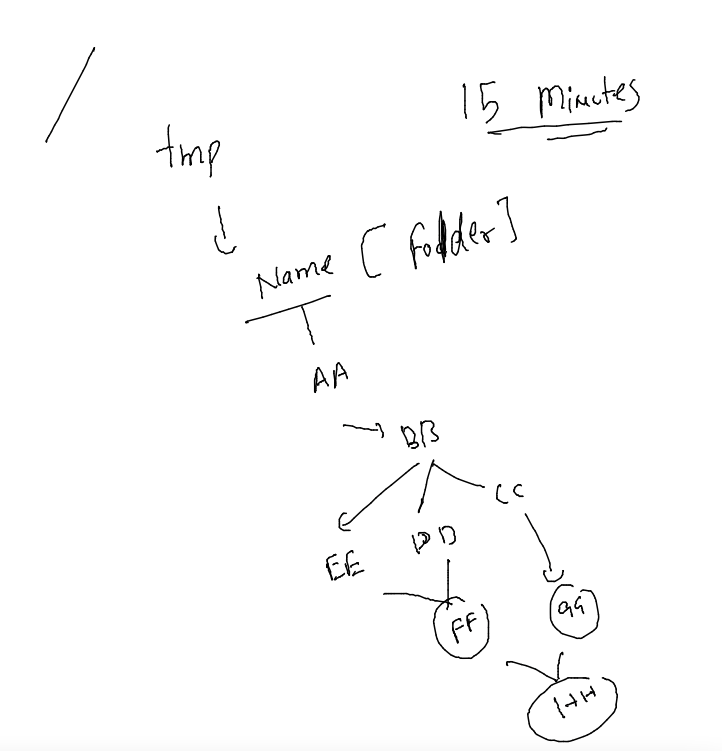 /
15 Minutes
tmp
Name [Folder]
AA
BB
CC
DD
EE
GG
FF
HH